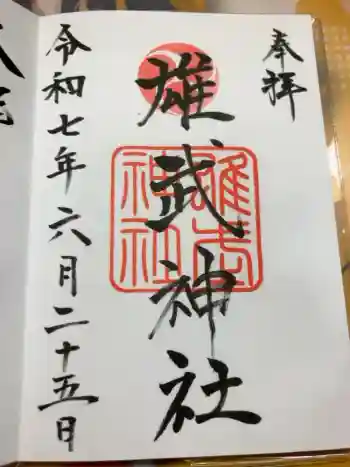 奉拝
雄武神社
雄武
神社
令和七年六月二十五日